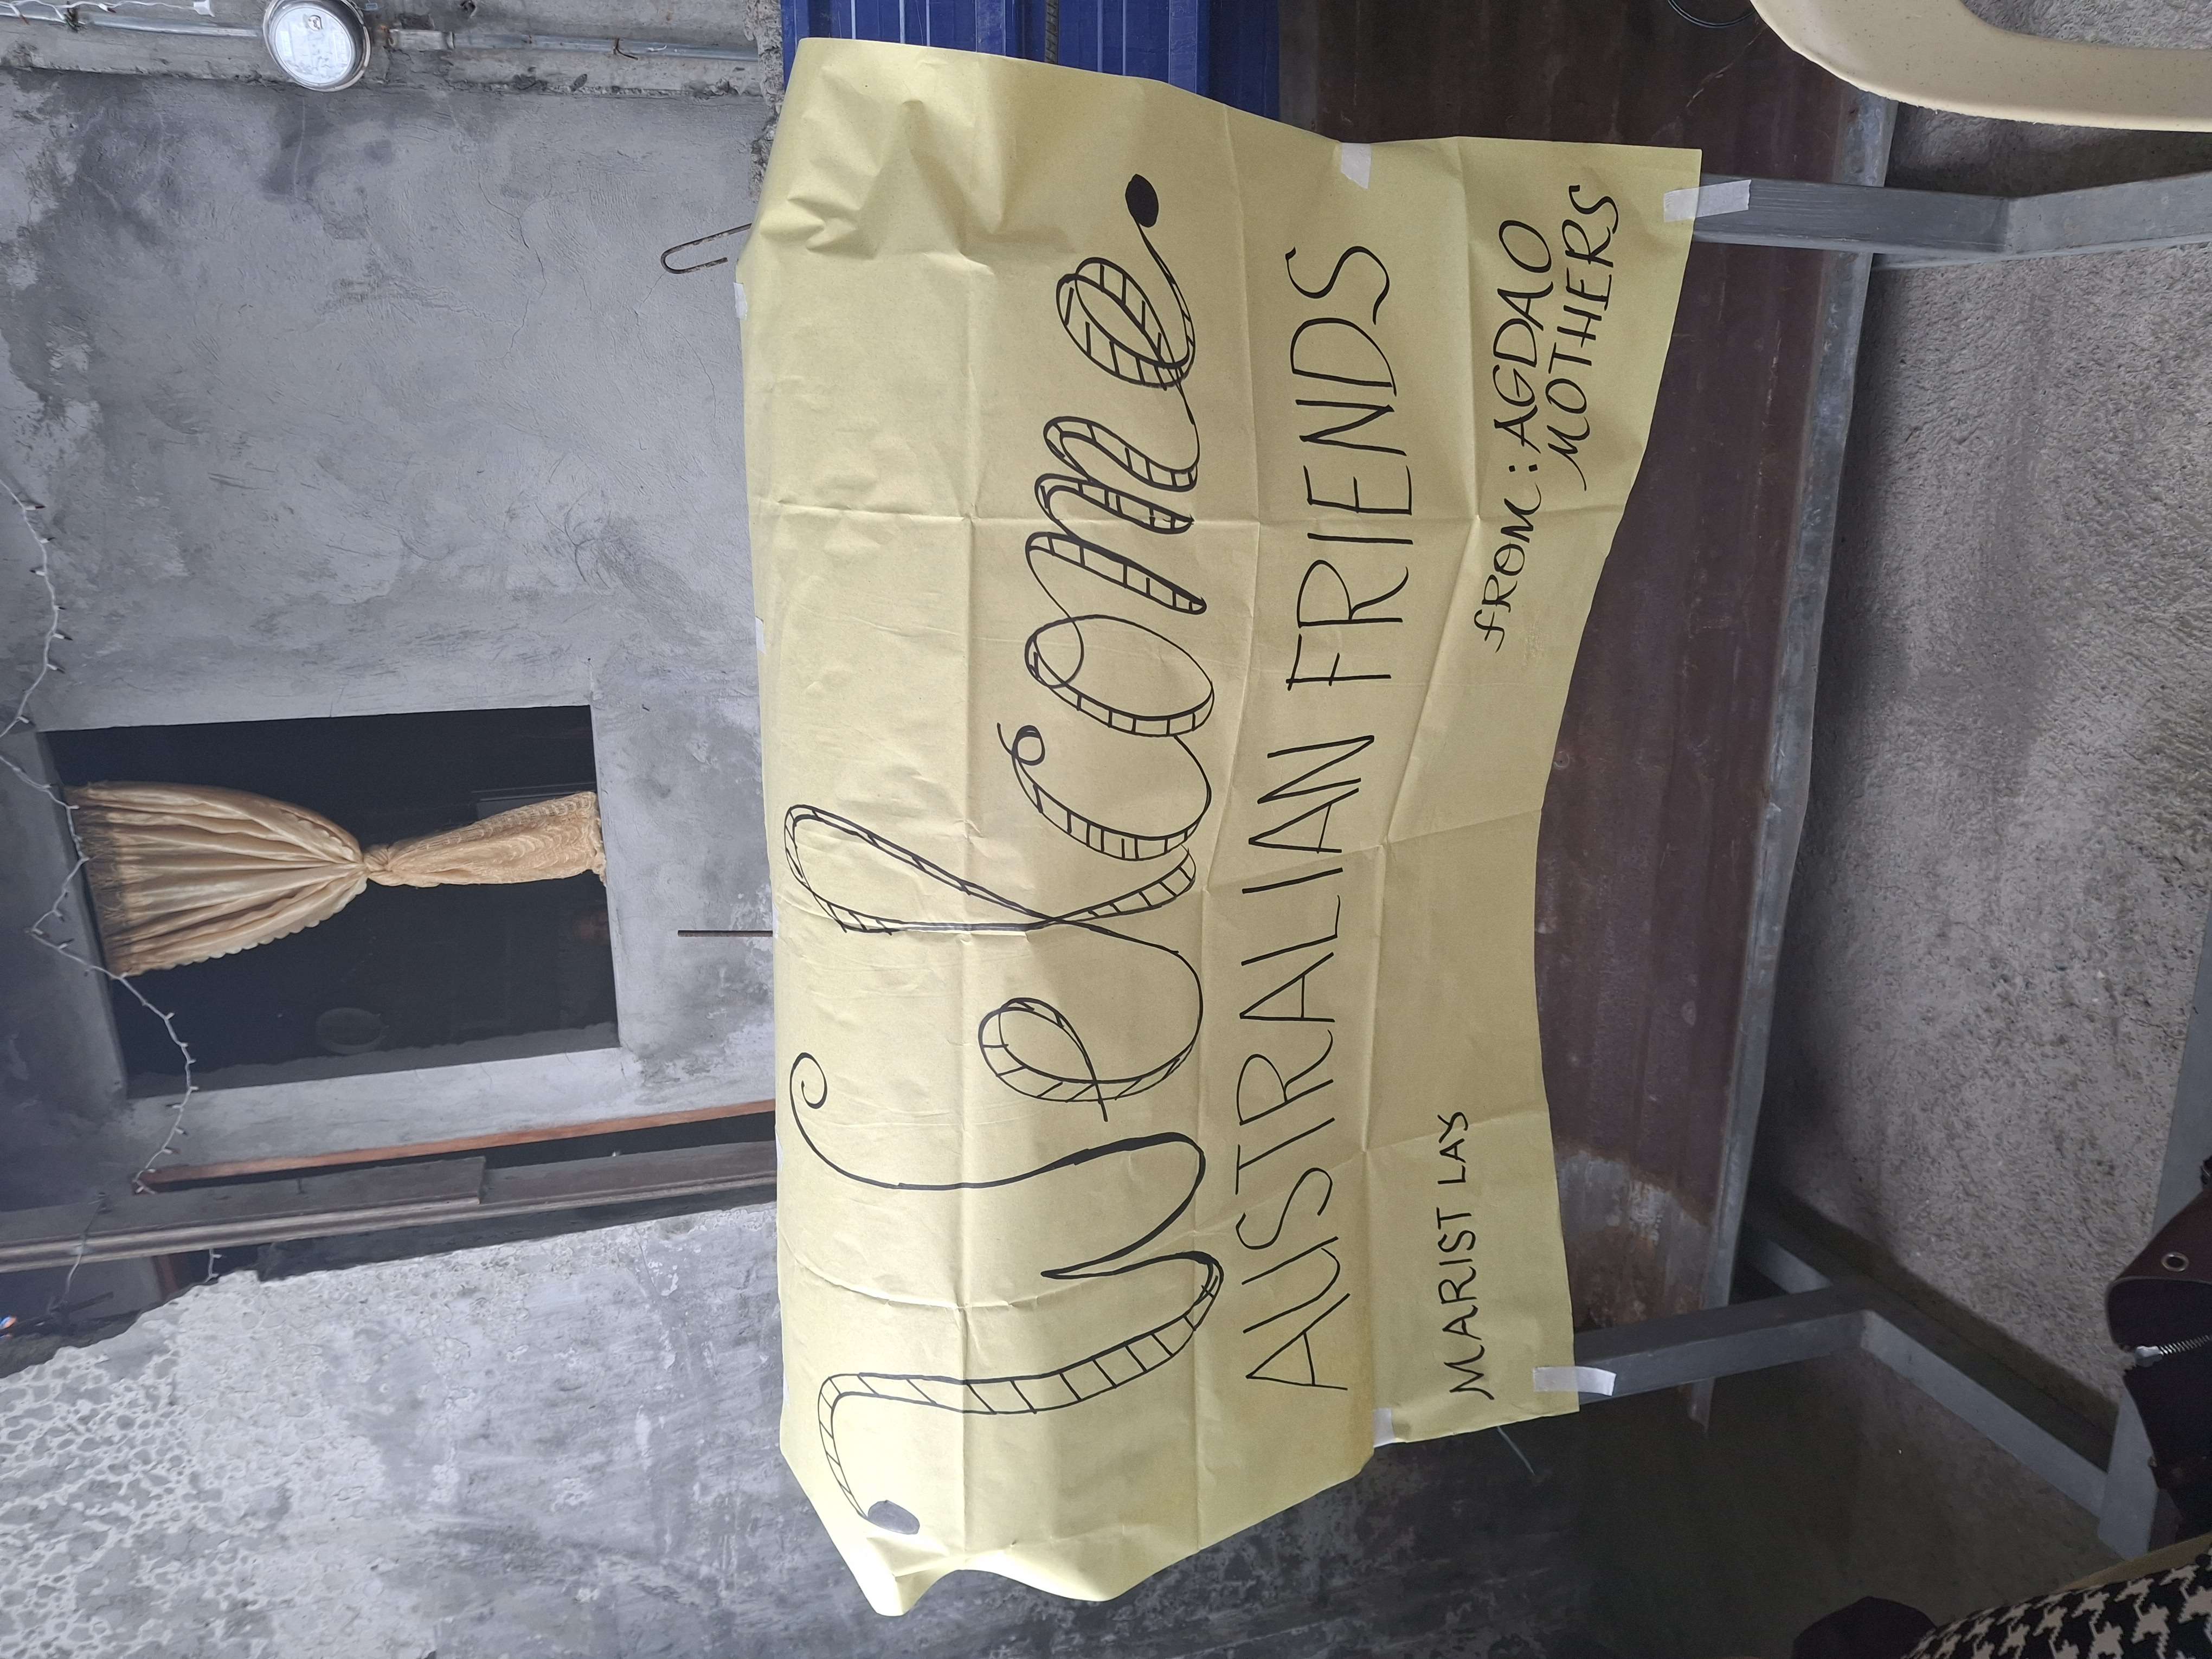 Welcome
AUSTRALIAN FRIENDS
MARIST LAY
FROM: AGDAO
MOTHERS